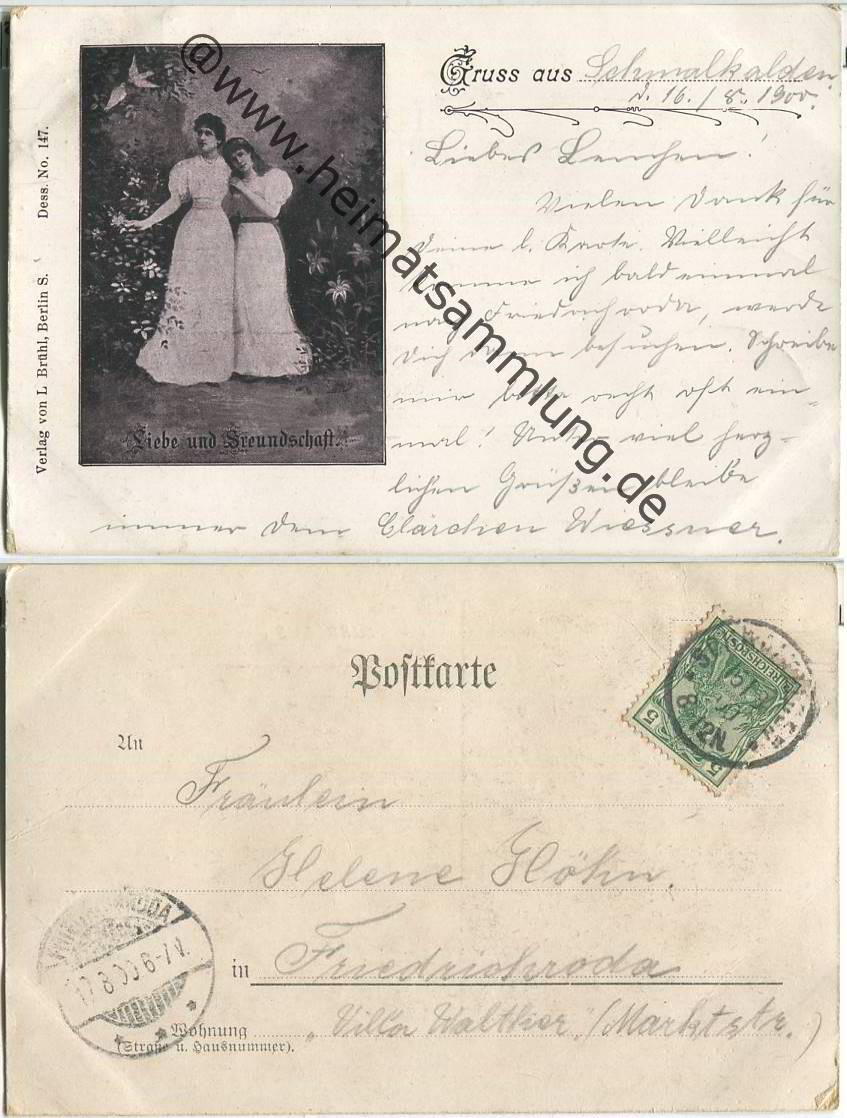 Gruss aus Schmalkalden,
d. 16./8. 1900.
Liebes Lenchen!
Vielen Dank für
Deine l. Karte. Vielleicht
komme ich bald einmal
nach Friedrichroda, werde
Dich dann besuchen. Schreibe
mir bitte recht oft ein-
mal! Unter viel herz-
lichen Grüßen bleibe
immer Dein Clärchen Wiessner.
Liebe und Freundschaft.
Verlag von L. Brühl, Berlin S. Dess. No. 147.
@www.heimatsammlung.de
Postkarte
REICHSPOST
5 5
8-12N
An Fräulein
Helene Höhn.
in Friedrichroda
Wohnung „Villa Walther" (Marktstr.)
(Straße u. Hausnummer).
8 00 6-7 V.